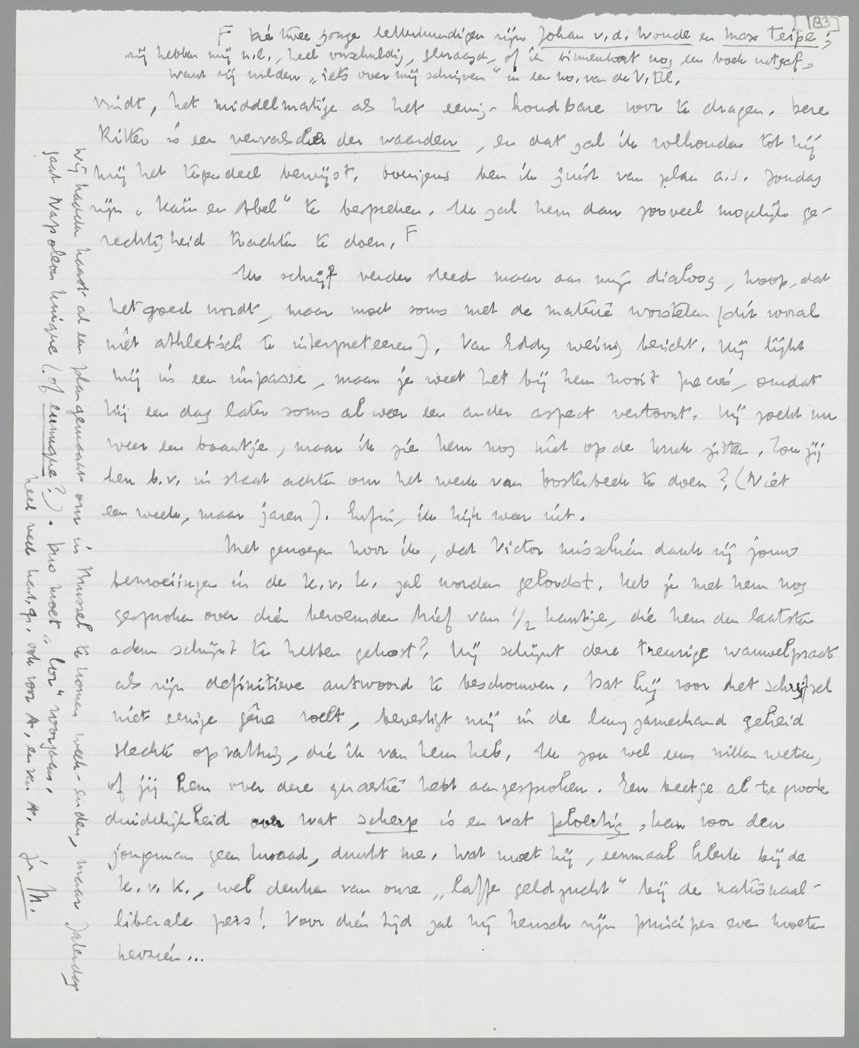 133
F Die twee jonge letterkundigen zijn Johan v.d. Woude en Max Teipe;
zij hebben mij n.l., heel onschuldig, gevraagd, of ik binnenkort nog een boek uitgaf,
want zij wilden „iets over mij schrijven" in een no. van de V. Bl.
vindt, het middelmatige als het eenig-houdbare voor te dragen. Deze
Ritter is een vervalscher der waarden, en dat zal ik volhouden tot hij
mij het tegendeel bewijst. Overigens ben ik juist van plan a.s. Zondag
zijn „Kaïn en Abel" te bespreken. Ik zal hem dan zooveel mogelijk ge-
rechtigheid trachten te doen. F
Ik schrijf verder steed maar aan mijn dialoog, hoop, dat
het goed wordt, maar moet soms met de materie worstelen (dit vooral
niet athletisch te interpreteeren). Van Eddy weinig bericht. Hij lijkt
mij in een impasse, maar je weet het bij hem nooit precies, omdat
hij een dag later soms al weer een ander aspect vertoont. Hij zoekt nu
weer een baantje, maar ik zie hem nog niet op de kruk zitten. Zou jij
hem b.v. in staat achten om het werk van Oosterbeek te doen? (Niet
een week, maar jaren). Enfin, ik kijk weer uit.
Met genoegen hoor ik, dat Victor misschien dank zij jouw
bemoeiingen in de K.v.K. zal worden geloodst. Heb je met hem nog
gesproken over dien beroemden brief van 1/2 kantje, die hem den laatsten
adem schijnt te hebben gekost? Hij schijnt deze treurige wauwelpraat
als zijn definitieve antwoord te beschouwen. Dat hij voor het schrijfsel
niet eenige gêne voelt, bevestigt mij in de langzamerhand geheid
slechte opvatting, die ik van hem heb. Ik zou wel eens willen weten,
of jij hem over deze quaestie hebt aangesproken. Een beetje al te groote
duidelijkheid over wat scherp is en wat ploertig, kan voor den
jongeman geen kwaad, dunkt me. Wat moet hij, eenmaal klerk bij de
K.v.K., wel denken van onze „laffe geldzucht" bij de nationaal-
liberale pers! Voor dien tijd zal hij heusch zijn principes even moeten
herzien...
Wij hadden haast al een plan gemaakt om in Brussel te komen week-enden, maar Zaterdag
gaat Napoleon Unique (of eunuque?). Dus moet voorgaan.
heel veel hartgr. ook voor A, en van A. je M.